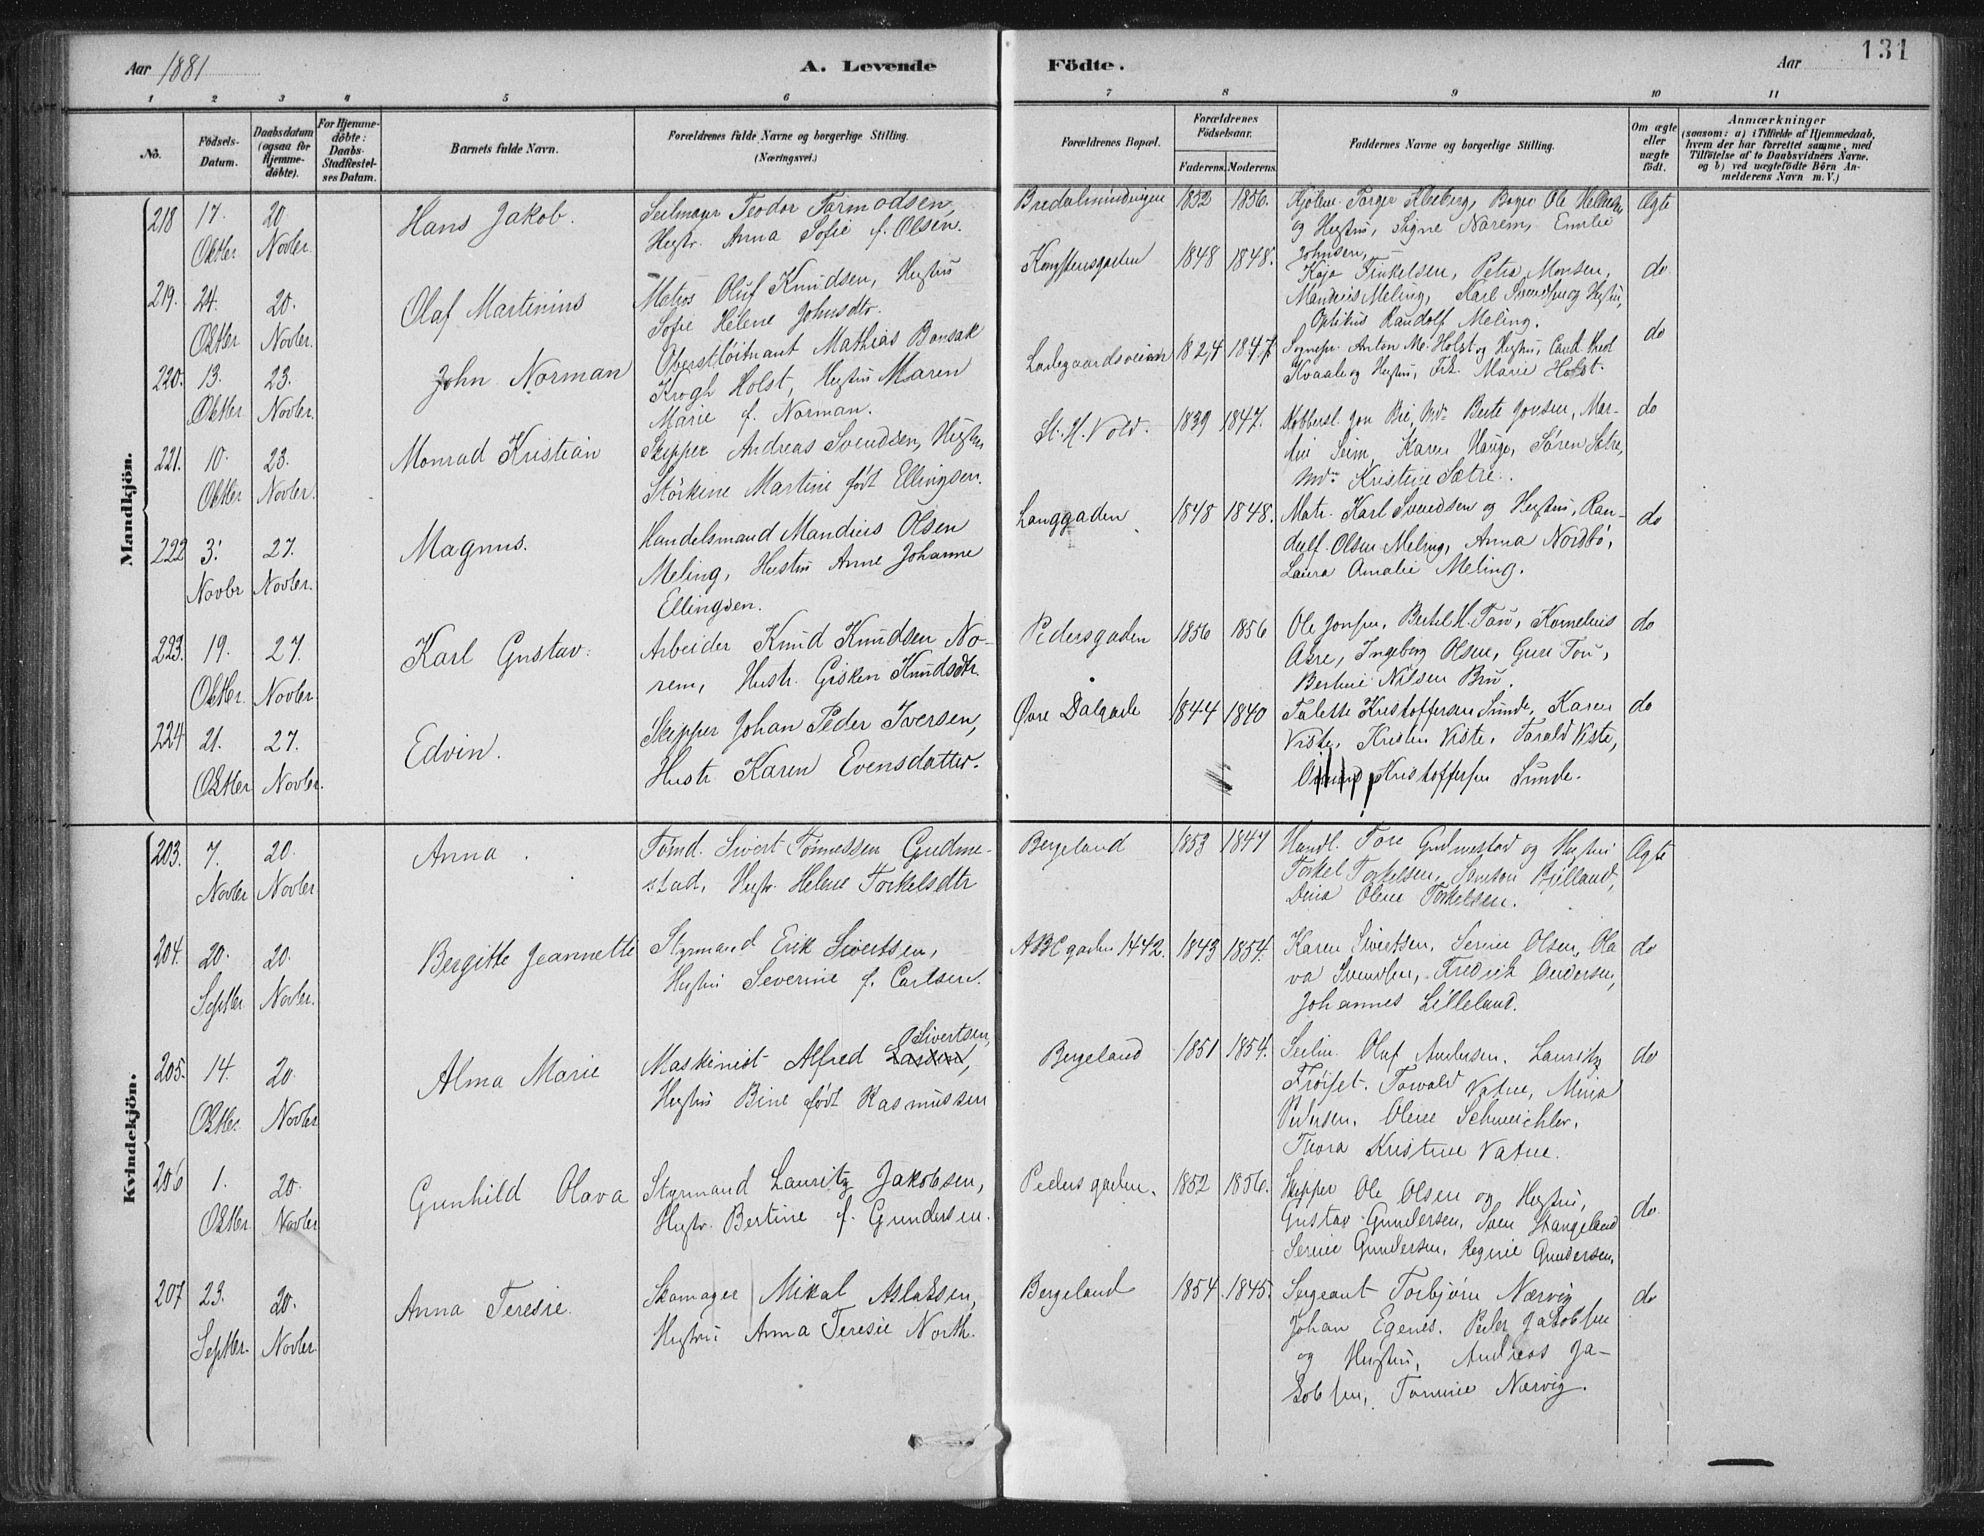 Aar 1881
A. Levende
Födte.
Aar
131
1 2 3 4 5 6 7 8 9 10 11
No.
Födsels-
Datum.
Daabsdatum
(ogsaa for
Hjemme-
döbte).
For Hjemme-
döbte:
Daabs-
Stadfæstel-
ses Datum.
Barnets fulde Navn.
Forældrenes fulde Navne og borgerlige Stilling.
(Næringsvei.)
Forældrenes Bopæl.
Forældrenes
Födselsaar.
Faderens. Moderens.
Faddernes Navne og borgerlige Stilling.
Om ægte
eller
uægte
födt.
Anmærkninger
(saasom: a) i Tilfælde af Hjemmedaab,
hvem der har forrettet samme, med
Tilföielse af to Daabsvidners Navne.
og b) ved uægtefödte Börn An-
melderens Navn m. V.)
Mandkjön.
218 17. Oktber 20 Novber.
Hans Jakob.
Seilmager Teodor Tormodsen,
Hustr. Anna Sofie f. Olsen.
1852 1856.
Torger Kleiberg, Bager Ole
og Hustru, Signe Narem, Emilie
Johnsen,
Ægte
219. 24. Oktber 20. Novber.
Olaf Martinius
Matros Oluf Knudsen, Hustru
Sofie Helene Johnsdtr.
Kongstensgaden
1848 1848.
Kaja Tinkelsen, Petra Monsen,
Mandius Meling, Karl Svendsen og Hustru,
Optikus Randolf Meling.
do
220. 13. Oktber 23. Novber.
John Norman
Oberstlöitnant Mathias Bonsak
Krogh Holst, Hustru Maren
Marie f. Norman.
Ladegaardsveien
1824 1847
Sognepr. Anton M. Holst og Hustru, Cand. theol
Kvaale og Hustru, Frk. Marie Holst.
do
221. 10. Oktber 23. Novber.
Monrad Kristian
Skipper Andreas Svendsen, Hustru
Störkine Martine født Ellingsen.
St. H. Vold.
1839 1847.
Kobbersl. Jon Bru, Md. Berte Jonsen, Mar-
tin Seim, Karen Hauge, Sören Sætre,
Md. Kristine Sætre.
do
222 3. Novbr 27. Novber.
Magnus.
Handelsmand Mandius Olsen
Meling, Hustru Anne Johanne
Ellingsen.
Langgaden
1848 1848.
Matr. Karl Svendsen og Hustru, Ran-
dulf Olsen Meling, Anna Nordbö,
Laura Amalie Meling.
do
223. 19. Oktber 27. Novber.
Karl Gustav.
Arbeider Knud Knudsen No-
rem, Hustr. Gisken Knudsdtr.
Pedersgaden
1856 1856
Ole Jonsen, Bertel H. Tou, Kornelius
Aare, Ingeborg Olsen, Gure Tou,
Bertine Nilsen Bru.
do
224 21. Oktber 27. Novber.
Edvin.
Skipper Johan Peder Iversen,
Hustr. Karen Evensdatter.
Øvre Dalgade
1844 1840
Talette Kristoffersen Sunde, Karen
Viste, Kristen Viste, Torald Viste,
Kristoffersen Sunde.
do
Kvindekjön.
203. 7. Novber 20. Novber.
Anna.
Tömd. Sivert Tönnessen Gudme-
stad, Hustr. Helene Torkelsdtr
Bergeland
1853 1847
Handl. Tore Gudmestad og Hustru
Torkel Torkelsen, Samson Bjelland,
Dina Olene Torkelsen.
Ægte
204. 20. Septber 20. Novber.
Bergitte Jeannette
Styrmand Erik Sivertsen,
Hustru Severine f. Carlsen.
ABC gaden 1442.
1843 1854.
Karen Sivertsen, Serine Olsen, Ola-
va Svendsen, Fredrik Andersen,
Johannes Lilleland.
do
205. 14. Oktber. 20. Novber
Alma Marie
Sivertsen,
Maskinist Alfred Larsen,
Hustru Bine født Rasmussen
Bergeland
1851 1854.
Seilm. Olaf Andersen. Lauritz
Fröiset. Torvald Vatne, Mina
Pedersen, Olene Schweichler,
Thora Kristine Vatne.
do
206 1. Oktber 20. Novber
Gunhild Olava
Styrmand Lauritz Jakobsen,
Hustr. Bertine f. Gundersen.
Pedersgaden.
1852 1856.
Skipper Ole Olsen og Hustru,
Gustav Gundersen, Sven Stangeland
Serine Gundersen, Regine Gundersen.
do
207 23. Septber. 20. Novber.
Anna Teresie.
Skomager Mikal Aslaksen,
Hustru Anna Teresie North.
Bergeland
1854. 1845.
Sergeant Torbjörn Nærvig
Johan Egenes. Peder Jakobsen
og Hustru, Andreas Ja-
kobsen, Tomine Nærvig.
do